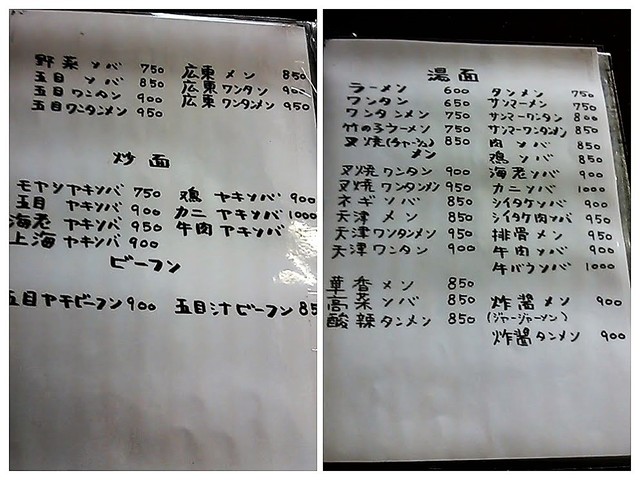 野菜ソバ 750 広東メン 850
五目ソバ 850 広東ワンタン 900
五目ワンタン 900 広東ワンタンメン 950
五目ワンタンメン 950
炒面
モヤシヤキソバ 750 鶏ヤキソバ 900
五目ヤキソバ 900 カニヤキソバ 1000
海老ヤキソバ 950 牛肉ヤキソバ
上海ヤキソバ 900
ビーフン
五目ヤキビーフン 900 五目汁ビーフン 85
湯面
ラーメン 600 タンメン 750
ワンタン 650 サンマーメン 750
ワンタンメン 750 サンマーワンタン 800
竹の子ラーメン 750 サンマーワンタンメン 850
叉焼(チャーシュー)メン 850 肉ソバ 850
鶏ソバ 850
叉焼ワンタン 900 海老ソバ 900
叉焼ワンタンメン 950 カニソバ 1000
ネギソバ 850 シイタケソバ 900
天津メン 850 シイタケ肉ソバ 950
天津ワンタンメン 950 排骨メン 950
天津ワンタン 900 牛肉ソバ 900
牛バウソバ 1000
華香メン 850
高菜ソバ 850 炸醤メン 900
酸辣タンメン 850 (ジャージャーメン)
炸醤タンメン 900